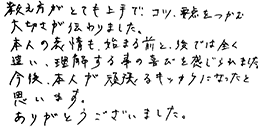 教え方がとても上手で、コツ、要点をつかむ
大切さが伝わりました。
本人の表情も、始まる前と、後では全く
違い、理解する事の喜びを感じられました
今後、本人が頑張るキッカケになったと
思います。
ありがとうございました。